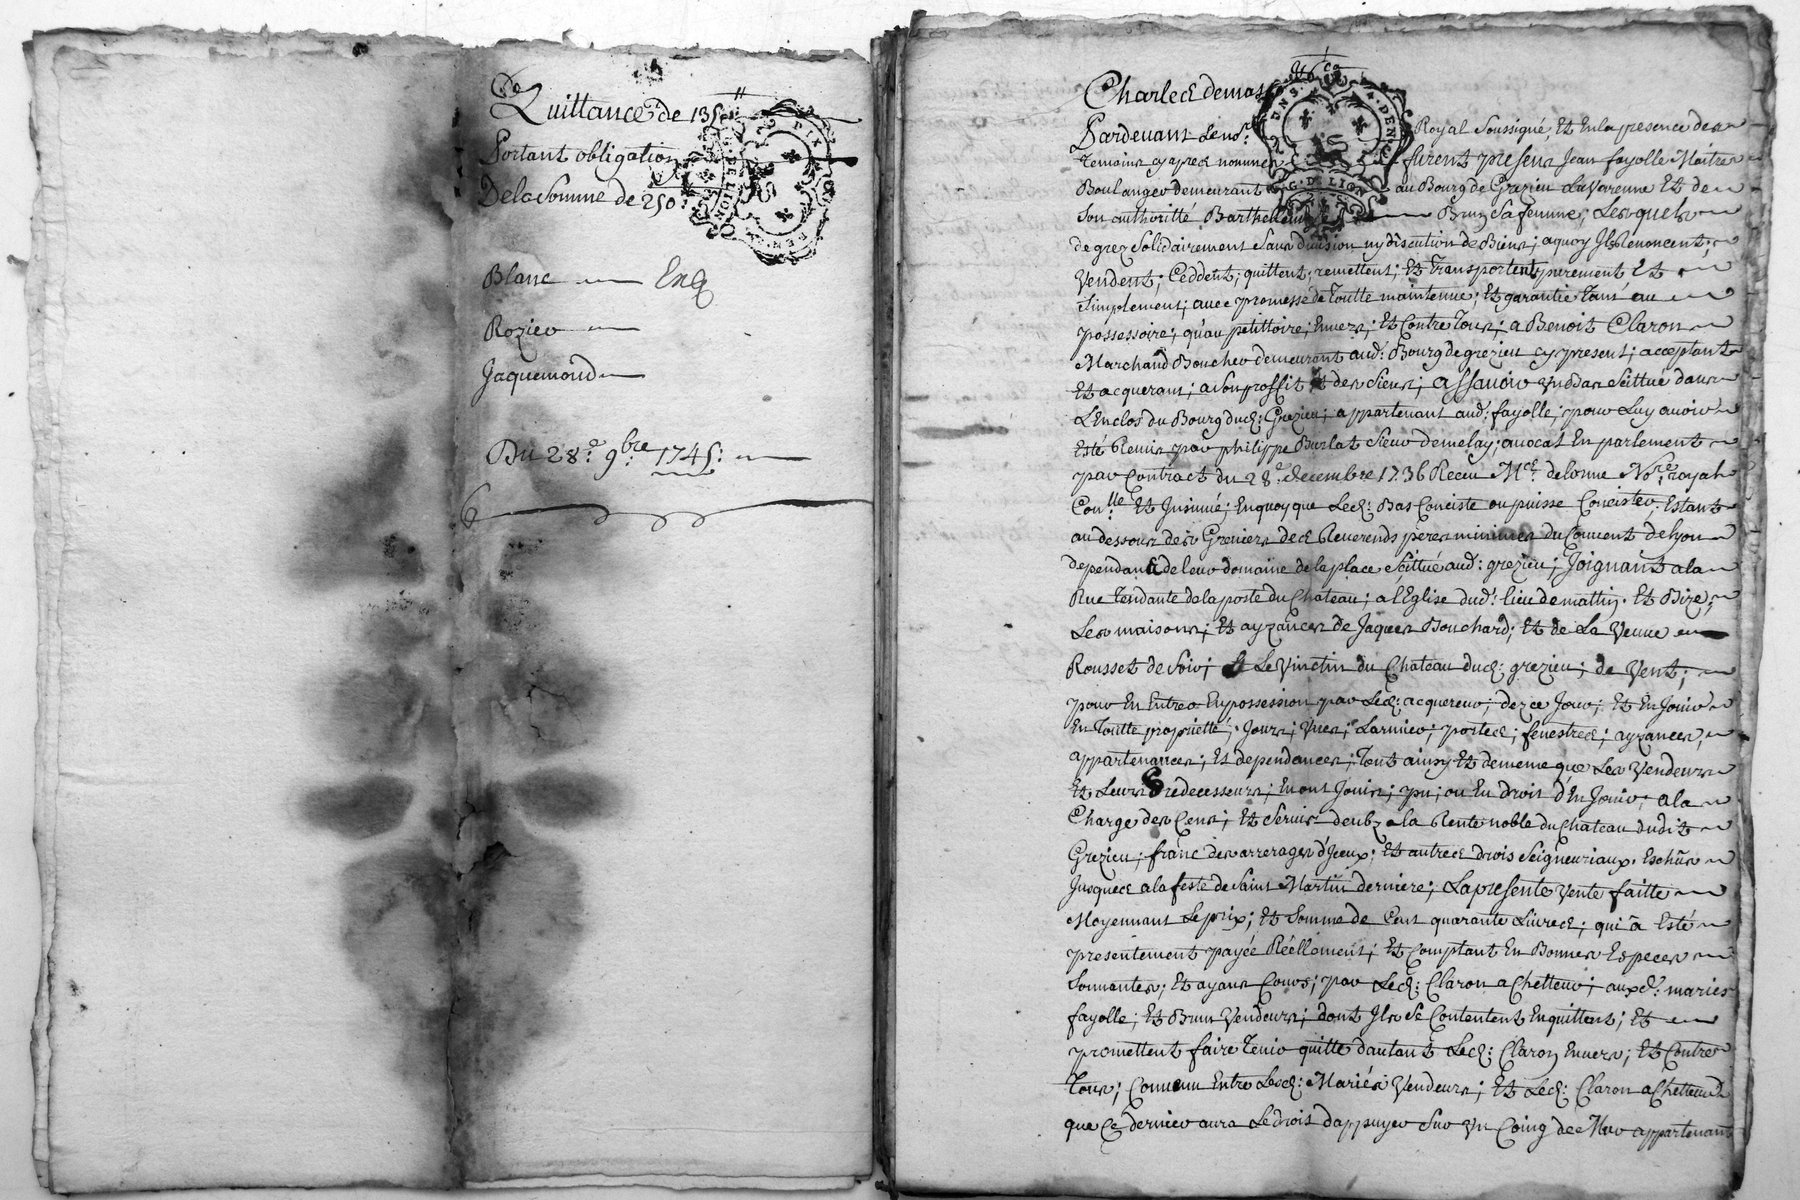 Quittance de 135#
Portant obligation
De la Somme de 250#
DIX DEN
G. D. LION
Blanc Enq
Rozier
Jaquemond
Du 28e. 9bre 1745:
Charles demas
DNS. 4. DENIE
G. D. LION
Pardevant Le nore. Royal Soussigné, Et En la presence des
temoins cy apres nommes furent presens Jean fayolle Maitre
Boulanger demeurant au Bourg de Grezieu La Varenne Et de
Son authoritté Barthelem Brun Sa femme, Lesquels
de grez Solidairement Sans division ny discution de Biens, a quoy Ils Renoncent;
Vendent; Ceddent; quittent; remettent; Et transportent purement Et
Simplement; avec promesse de toutte maintenue; Et garantie tant au
possessoire; qu'au petittoire; Envers; Et Contre tous; a Benoit Claron
Marchand Boucher demeurant aud: Bourg de grezieu cy present; acceptant
Et acquerant; a Son proffit Et des Siens; assavoir Un Bas Scittué dans
L'Enclos du Bourg dud: Grezieu; appartenant aud: fayolle; pour Luy avoir
Esté Remis par philippe Burlat Sieur demelay; avocat En parlement
par Contract du 28e. decembre 1736 Receu Me. delorme Nore. royal
Conlle Et Insinué; En quoy que Led: Bas Conciste ou puisse Concister; Estant
au dessous des Greniers des Reverends peres minimes du Couvent de Lyon
dependant de leur domaine de la place Scittué aud: grezieu; Joignant a la
Rue tendante de la poste du Chateau; a l'Eglise dud: lieu de mattin. Et Bize;
Les maisons; Et ayzances de Jaques Bouchard; Et de La Veuve
Rousset de Soir; Et Le Vinctin du Chateau dud: grezieu; de Vent;
pour En Entrer En possession par Led: acquereur; dez ce Jour; Et En Jouir
En toutte proprietté; Jours; Vues; Larmier; portes; fenestres; ayzances,
appartenances; Et dependances; tout ainsy Et de meme que Les Vendeurs
Et Leurs Predecesseurs; En ont Jouis; pu; ou Eu droit d'En Jouir; a la
Charge des Cens; Et Servis deubz a la Rente noble du Chateau dudit
Grezieu; franc des arrerages d'Jceux; Et autres drois Seigneuriaux. Eschus
Jusques a la feste de Saint Martin derniere; La presente Vente faitte
Moyennant Le prix; Et Somme de Cent quarante Livres; qui a Esté
presentement payée Réellement; Et Comptant En Bonnes Especes
Sonnantes; Et ayans Cours; par Led: Claron achetteur; auxd: mariés
fayolle; Et Brun Vendeurs; dont Ils Se Contentent En quittent; Et
promettent faire tenir quitte dautant Led: Claron Envers; Et Contre
tous; Convenu Entre Lesd: Mariés Vendeurs; Et Led: Claron achetteur
que Ce dernier aura Le droit d'appuyer Sur Un Coing de Mur appartenant